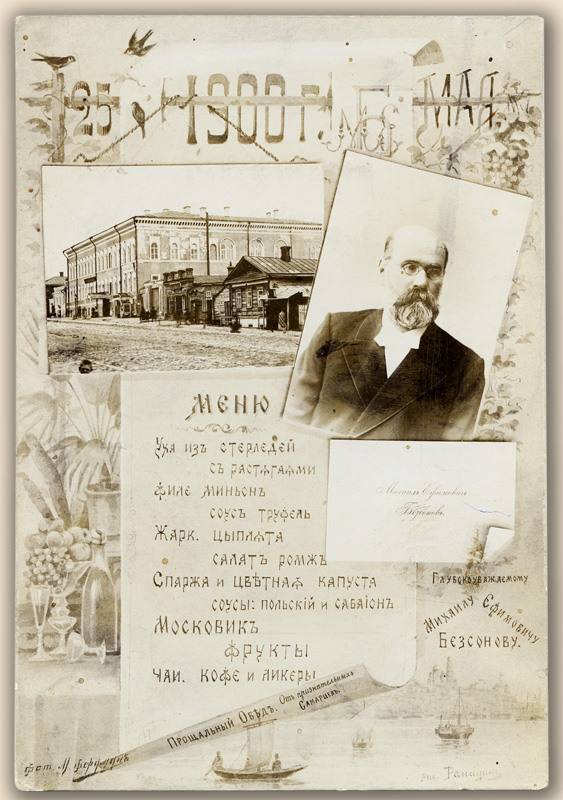 25 1900 г. МАЯ
Меню
Уха изъ стерледей
съ растягаями
Филе миньонъ
соусъ труфель
Жарк. цыплята
салатъ ромжъ
Спаржа и цвѣтная капуста
соусы: польскій и сабаіонъ
Московикъ
фрукты
Чаи, кофе и ликеры
Михаилъ Ефимовичъ
Безсоновъ.
Глубокоуважаемому
Михаилу Ефимовичу
Безсонову.
Прощальный Обѣдъ. Отъ признательныхъ
Самарцевъ.
фот. М.
рис.